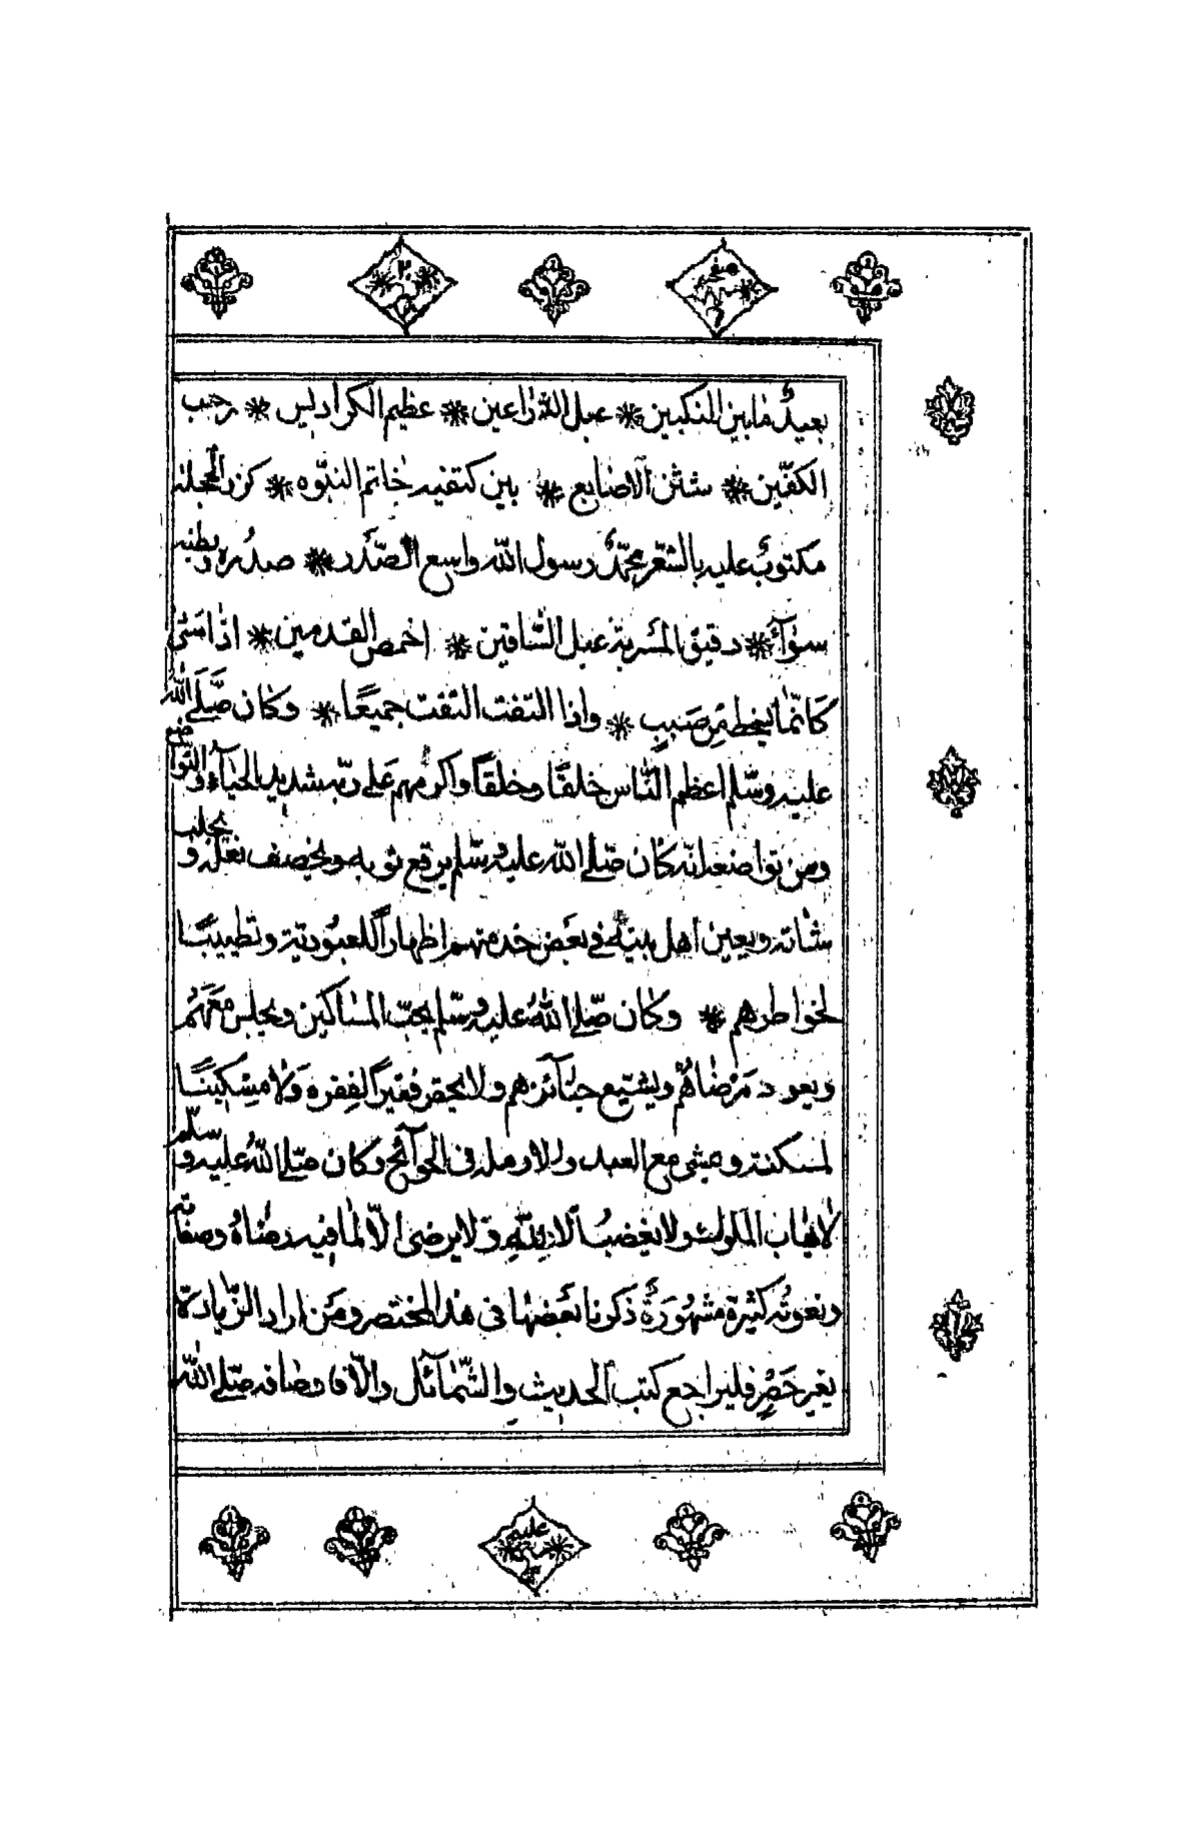 صفحه
بعيدٌ ما بين المنكبين * عبل الذراعين * عظيم الكراديس * رحب
الكفّين * شثن الاصابع * بين كتفيه خاتم النبّوه * كزر الحجلة
مكتوبٌ عليه بالشعر محمّدٌ رسول الله واسع الصّدر * صدره وبطنه
سوآءٌ * دقيق المسربة عبل السّاقين * اخمص القدمين * اذا مشى
كَانّما ينحط من صَببٍ * واذا التفت التفت جميعًا * وكان صَلَّى الله
عليه وسّلم اعظم النّاس خلقًا وخلقاً واكرمهم عَلى ربّه شديد الحيآء والتواضع
ومن تواضعه انّه كان صّلے الله عليه وسّلم يرقع ثوبه ويخصف نعله ويحلب
شاته ويعين اهل بيته في بعَض خدمتهم اظهاراً للعبُوديّة وتطييبًا
لخواطرهم * وكان صّلے اللهُ عليه وسّلم يحبّ المساكين ويجلس معَهَم
ويعود مَرْضاهُم ويشيّع جنآئزهم ولا يحقر فقيراً لفِقره وَلا مِسْكينًا
لمسكنته ويمشى مع العبد والارمله فى الحوآئج وكان صّلے اللهُ عليه وسلّم
لا يهاب الملوك ولا يغضبُ الا للهِ ولا يرضى الّا لما فيه رضاهُ وصفاته
ونعوتُه كثيرة مشهُورَةٌ ذَكرنا بعَضها فى هذا المختصر ومَن اراد الزّيادة
بغير حَصْرٍ فليراجع كتب الحديث والشّمآئل والّا فاوصافه صّلے اللّه
عليه